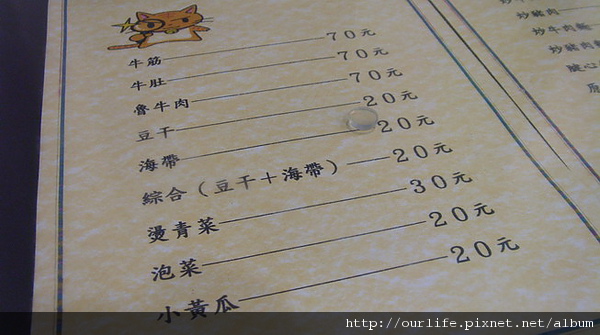 牛筋 70元
牛肚 70元
魯牛肉 70元
豆干 20元
海帶 20元
綜合（豆干＋海帶） 20元
燙青菜 30元
泡菜 20元
小黃瓜 20元
炒豬肉
炒牛肉麵
炒豬肉麵
http://ourlife.pixnet.net/album